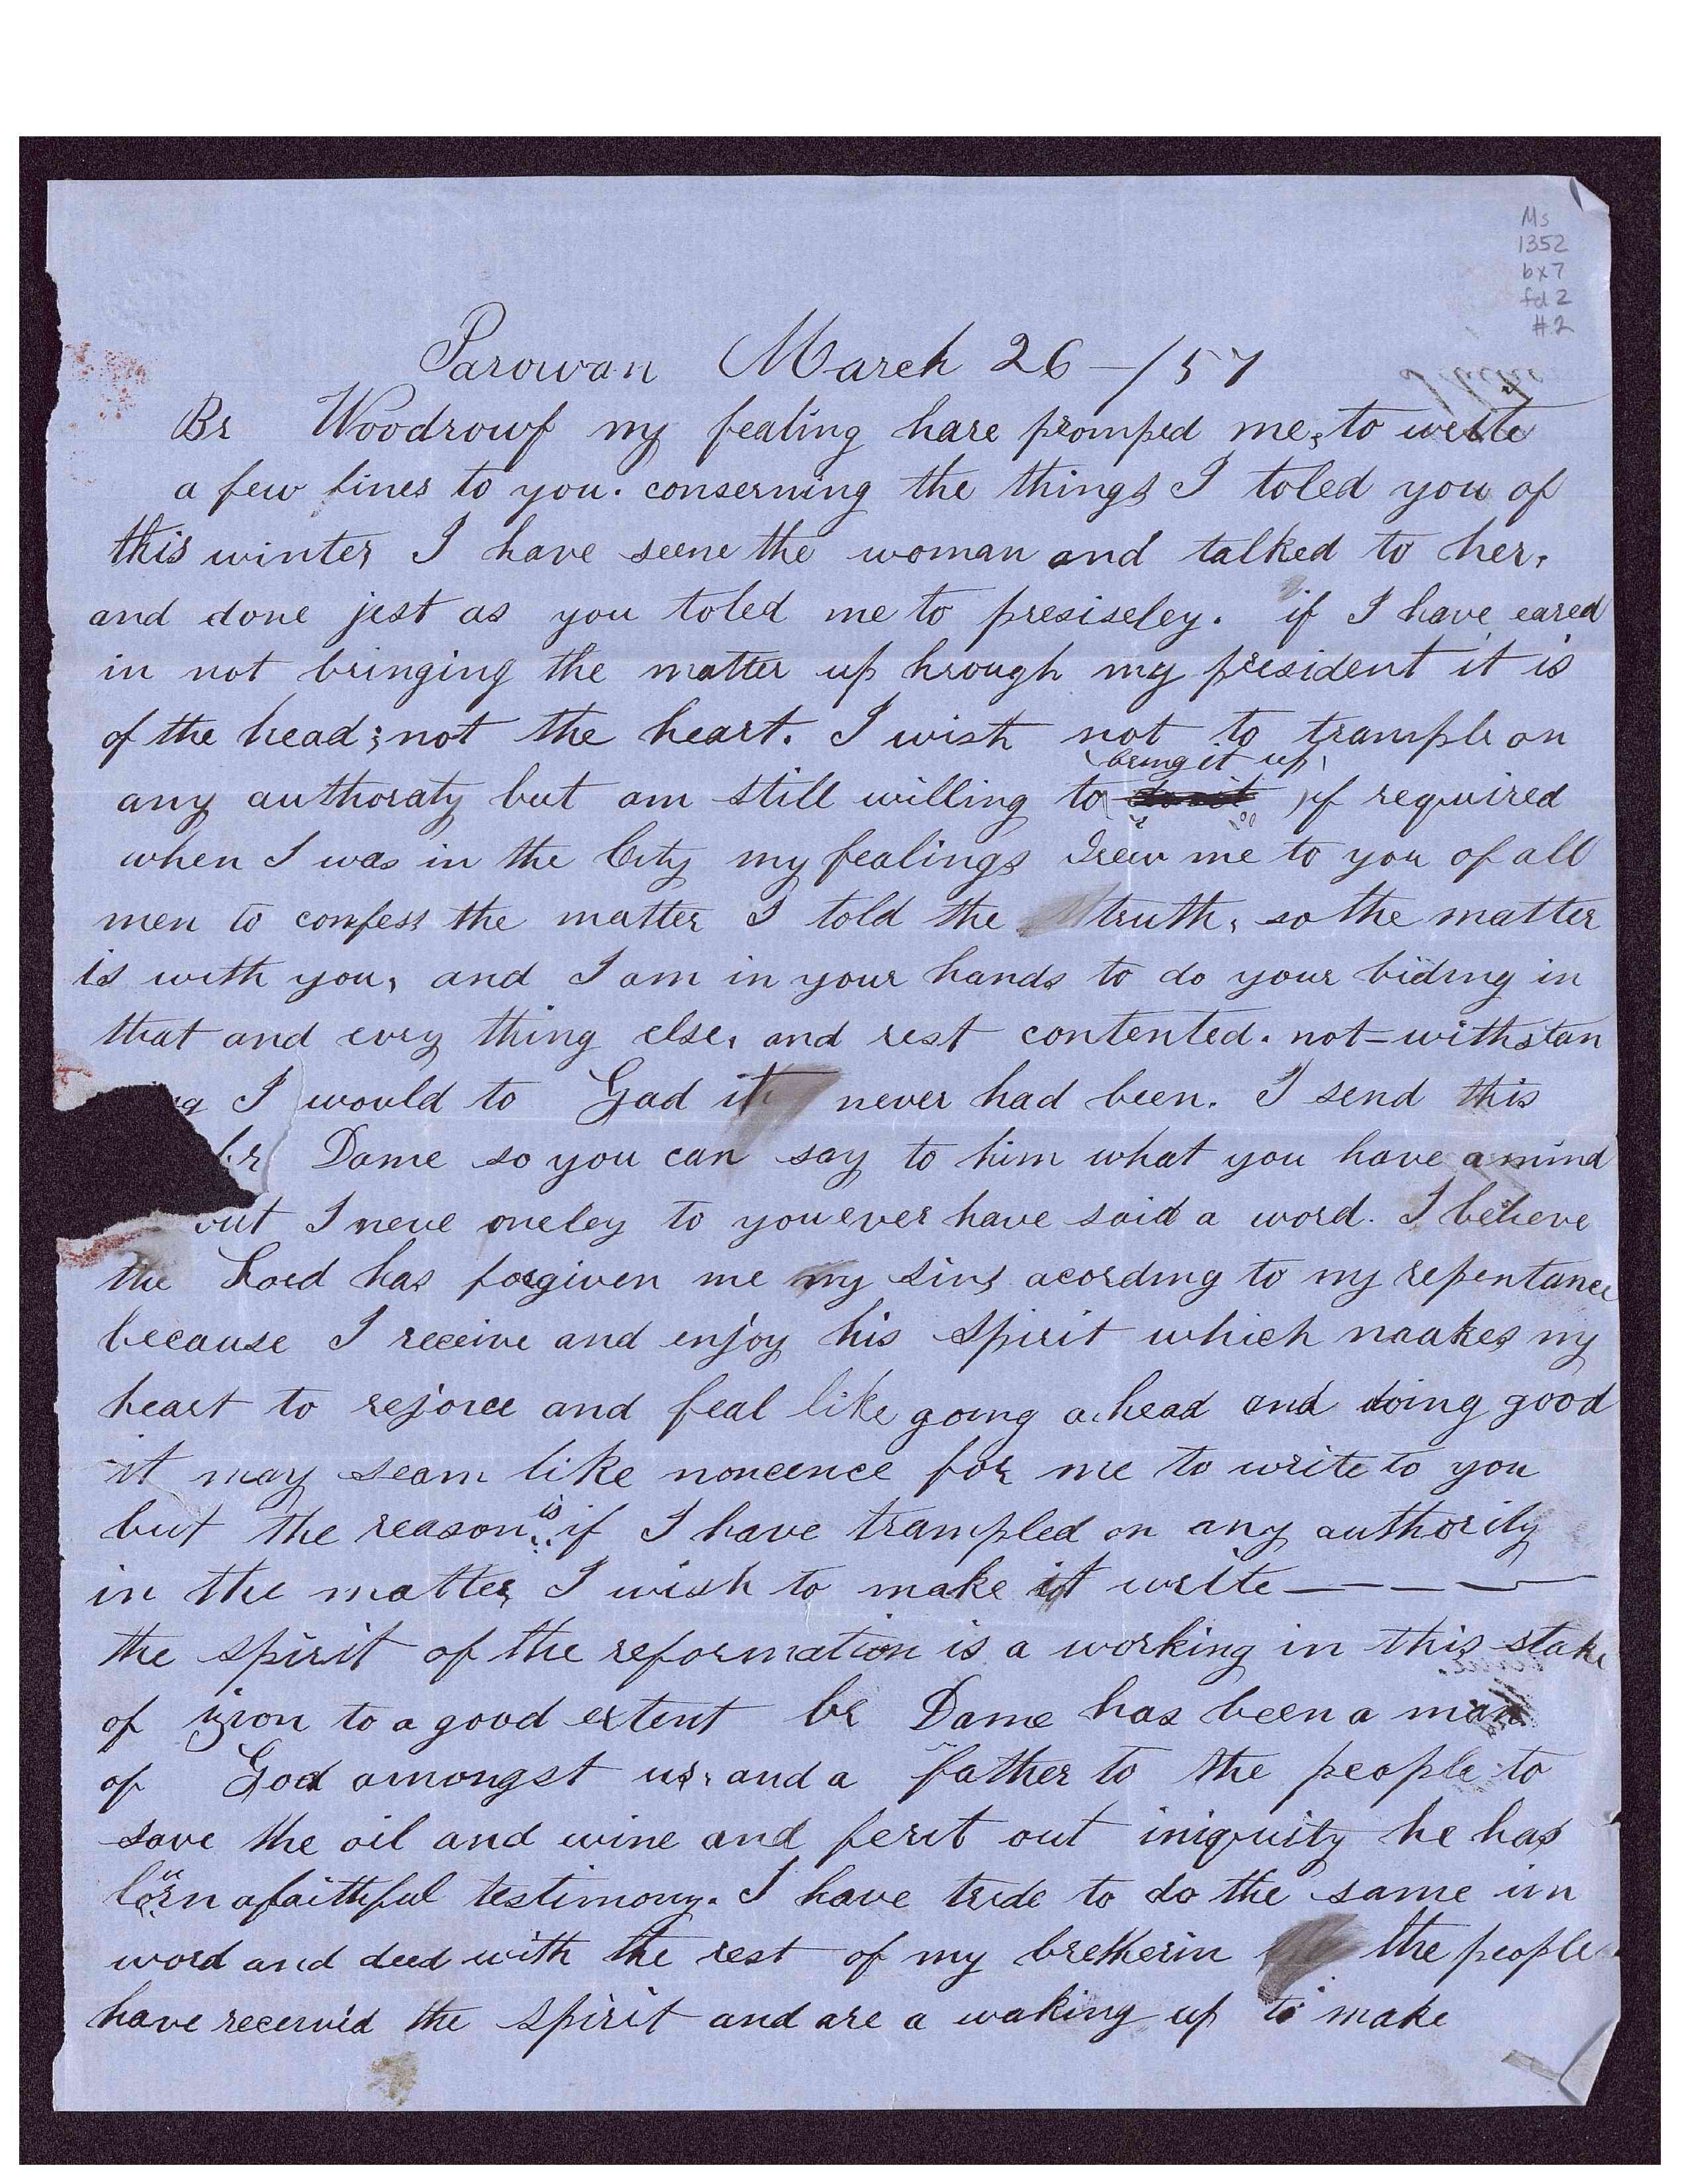 Ms
1352
bx7
fd 2
#2
Parowan March 26 - /57
Br Woodrowf my fealing hare promped me, to write
a few lines to you. conserning the things I toled you of
this winter I have seene the woman and talked to her,
and done jest as you toled me to presiseley. if I have eared
in not bringing the matter up hrough my president it is
of the head; not the heart. I wish not to trample on
bring it up
any authoraty but am still willing to if required
when I was in the City my fealings drew me to you of all
men to confess the matter I told the truth, so the matter
is with you, and I am in your hands to do your biding in
that and evry thing else, and rest contented. not-withstan
ng I would to Gad it never had been. I send this
br Dame so you can say to him what you have a mind
out I neve oneley to you ever have said a word. I believe
the Lord has forgiven me my sins acording to my repentance
because I receive and enjoy his spirit which maakes my
heart to rejoice and feal like going a head and doing good
it may seam like noncence for me to write to you
but the reason is if I have trampled on any authority
in the matter, I wish to make it write — — —
the spirit of the reformation is a working in this stake
of zion to a good extent br Dame has been a man
of God amongst us, and a father to the people to
save the oil and wine and ferit out iniquity he has
born a faithful testimony. I have tride to do the same in
word and deed with the rest of my bretherin the people
have received the spirit and are a waking up to make